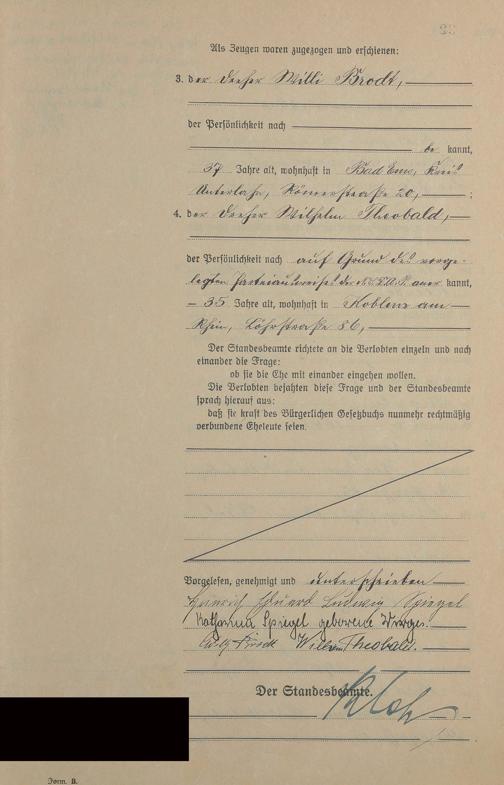 Als Zeugen waren zugezogen und erschienen:
3. der Dreher Willi Brodt,
der Persönlichkeit nach
be kannt,
37 Jahre alt, wohnhaft in Bad Ems, Kreis
Unterlahn, Römerstraße 20, ;
4. der Dreher Wilhelm Theobald,
der Persönlichkeit nach auf Grund des vorge-
legten Parteiausweises der N.S.D.A.P. aner kannt,
35 Jahre alt, wohnhaft in Koblenz am
Rhein, Löhrstraße 86,
Der Standesbeamte richtete an die Verlobten einzeln und nach
einander die Frage:
ob sie die Ehe mit einander eingehen wollen.
Die Verlobten bejahten diese Frage und der Standesbeamte
sprach hierauf aus:
daß sie kraft des Bürgerlichen Gesetzbuchs nunmehr rechtmäßig
verbundene Eheleute seien.
Vorgelesen, genehmigt und unterschrieben
Heinrich Eduard Ludwig Spiegel
Katharina Spiegel geborene
Willi Brodt Wilhelm Theobald.
Der Standesbeamte.
Form. B.